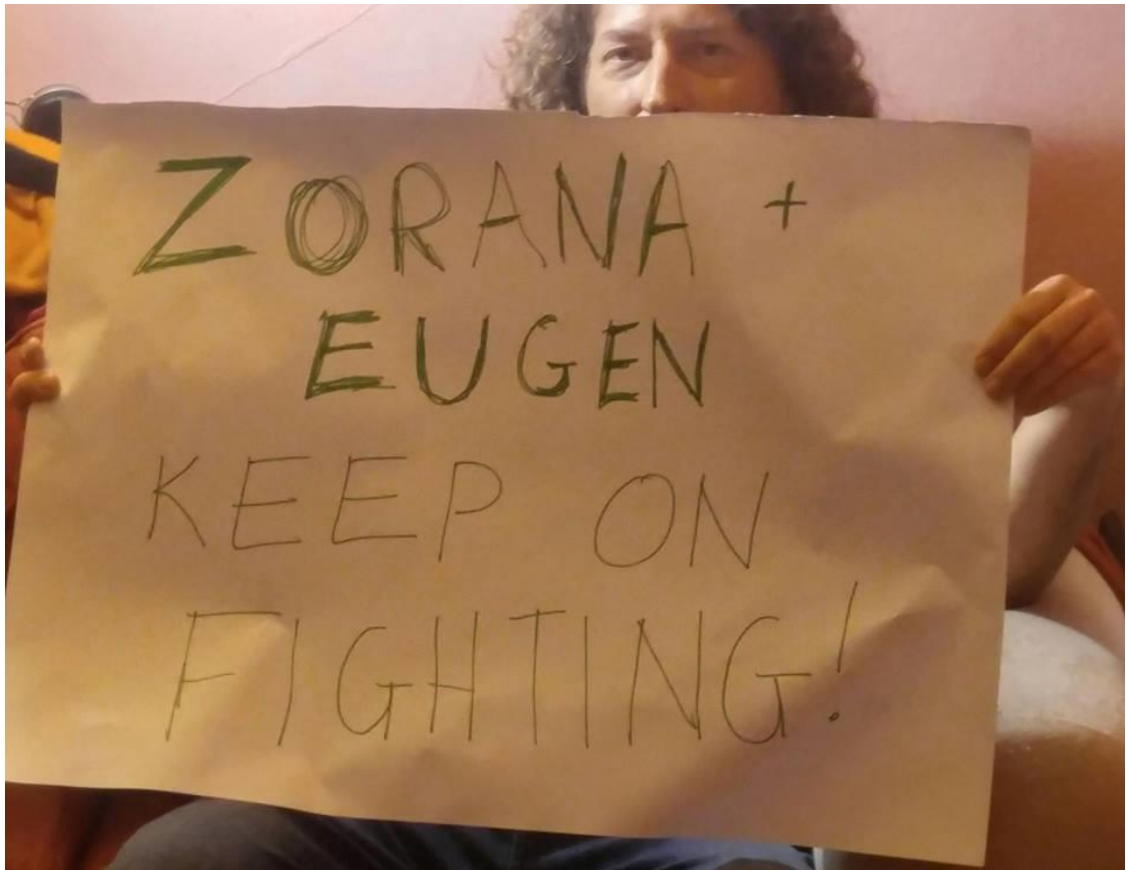 ZORANA +
EUGEN
KEEP ON
FIGHTING!